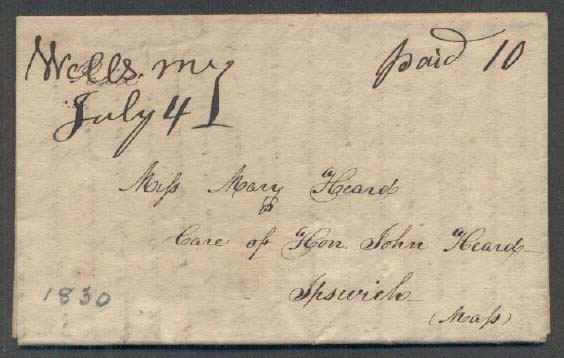 Wells. me
July 4
paid 10
Miss Mary Heard
Care of Hon. John Heard
Ipswich
(Mass)
1830